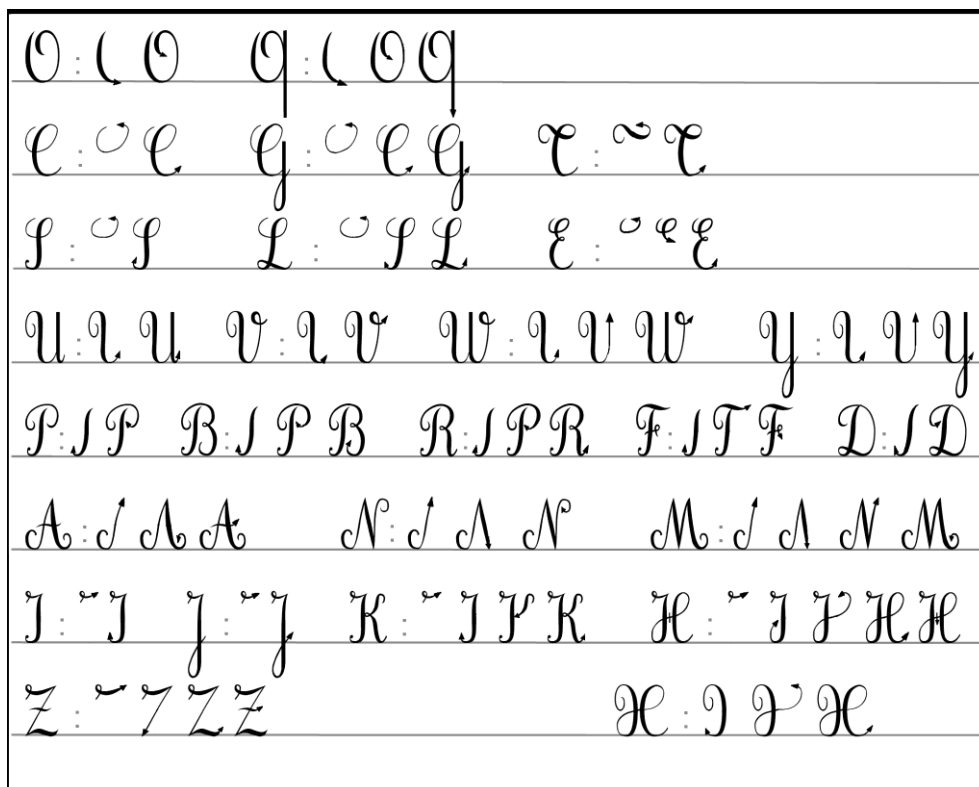 O : O Q : O Q
C : C G : C G T : T
S : S L : S L E : E
U : U V : V W : W Y : Y
P : P B : P B R : P R F : T F D : D
A : A N : N M : N M
I : I J : J K : I K H : I H H
Z : Z Z